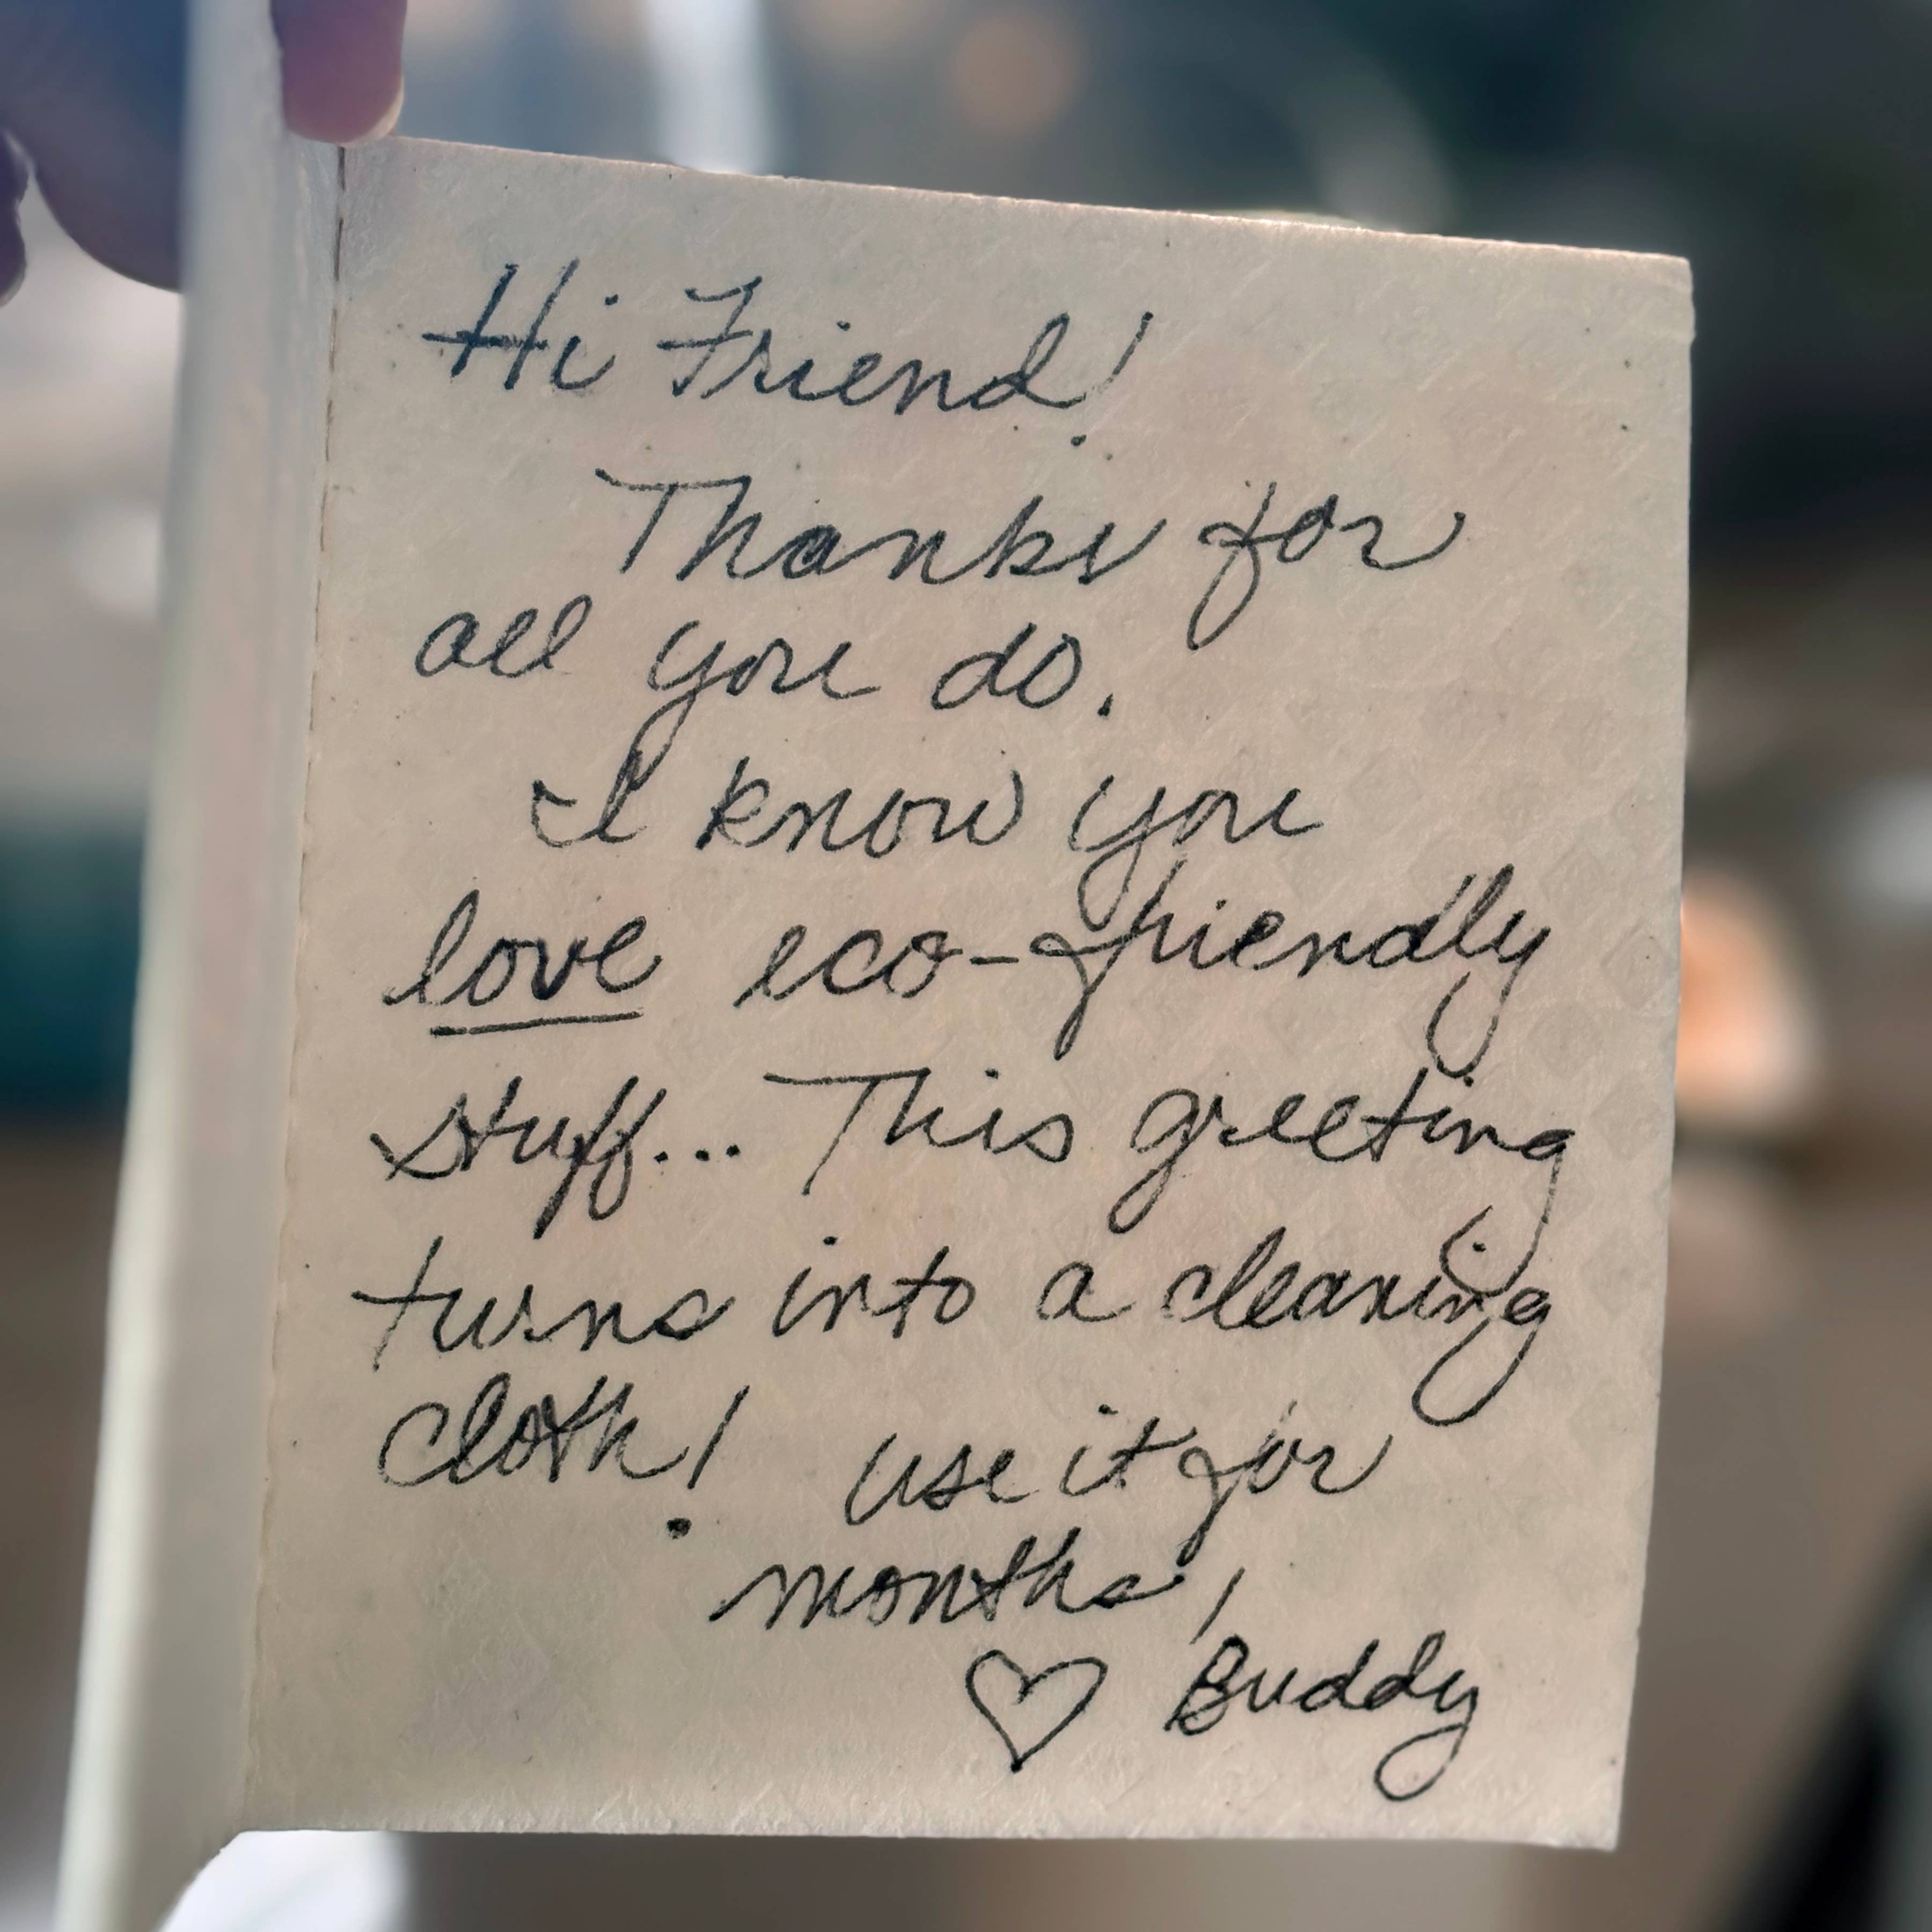 Hi Friend!
Thanks for
all you do.
I know you
love eco-friendly
stuff... This greeting
turns into a cleaning
cloth! Use it for
months,
♡ Buddy